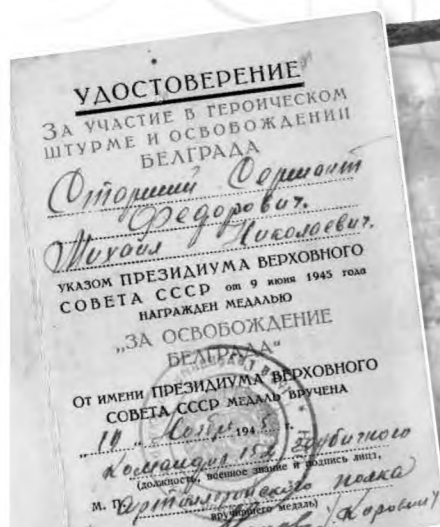 УДОСТОВЕРЕНИЕ
ЗА УЧАСТИЕ В ГЕРОИЧЕСКОМ
ШТУРМЕ И ОСВОБОЖДЕНИИ
БЕЛГРАДА
Старший Сержант
Федорович.
Михаил Николаевич.
УКАЗОМ ПРЕЗИДИУМА ВЕРХОВНОГО
СОВЕТА СССР от 9 июня 1945 года
НАГРАЖДЕН МЕДАЛЬЮ
„ЗА ОСВОБОЖДЕНИЕ
БЕЛГРАДА“
ОТ ИМЕНИ ПРЕЗИДИУМА ВЕРХОВНОГО
СОВЕТА СССР МЕДАЛЬ ВРУЧЕНА
„10 „ Ноябр 1945 г.
Командир 152 гаубичного
(должность, военное звание и подпись лица,
М. П. артиллерийского полка
вручившего медаль)